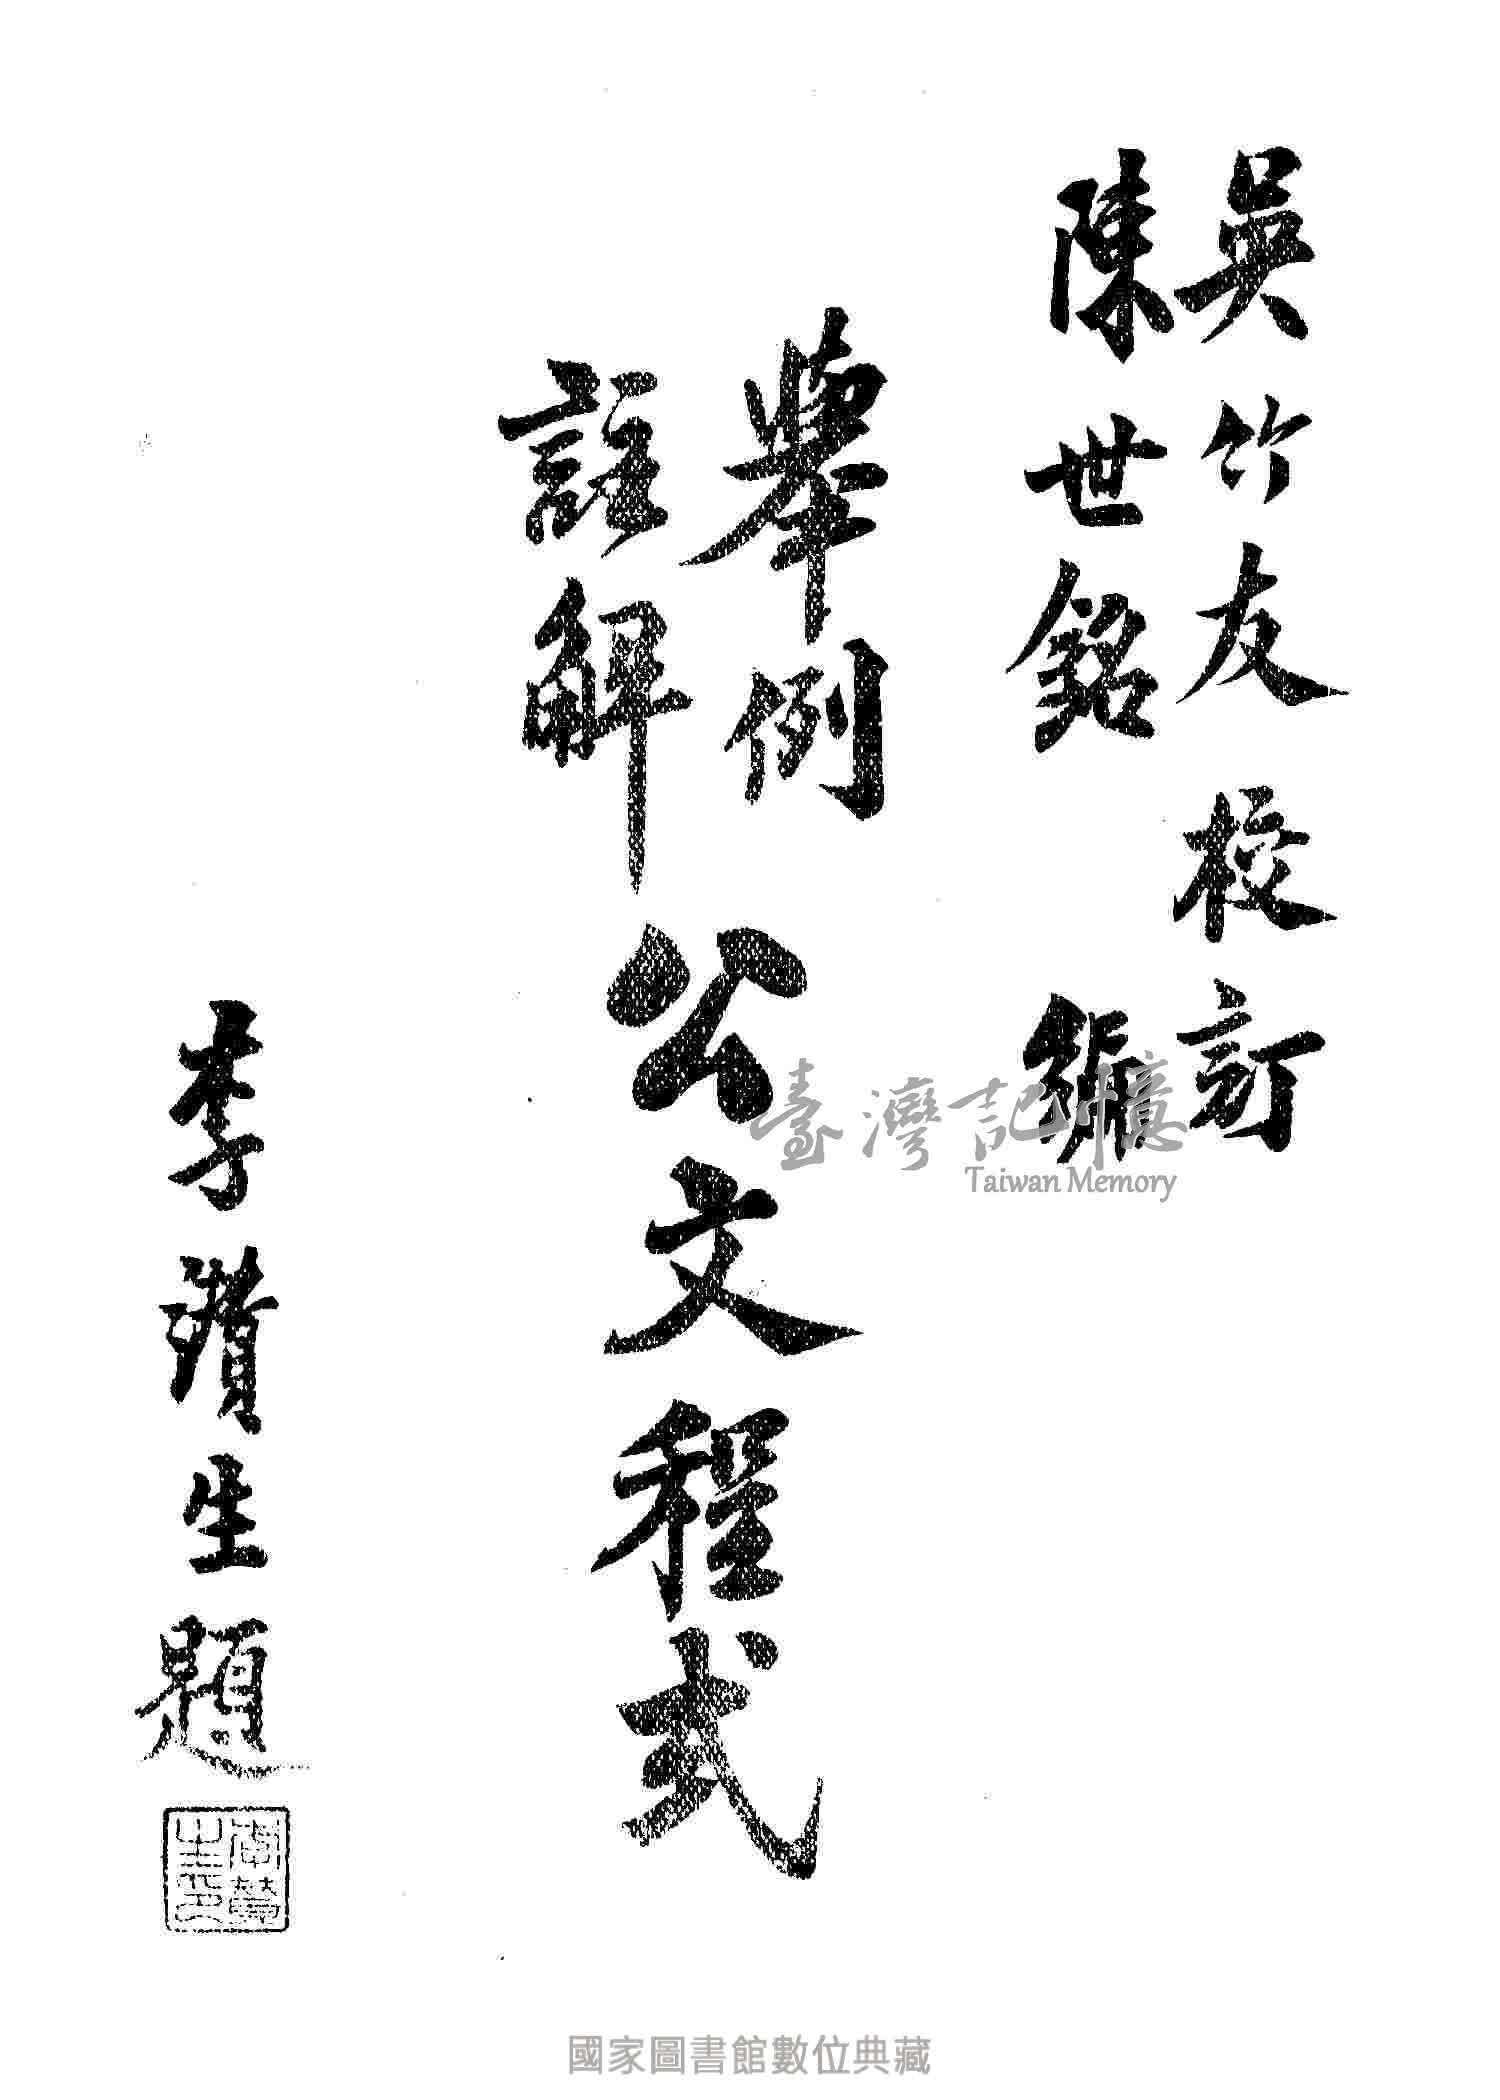 吳竹友校訂
陳世銘編
舉例
註解
公文程式
李讚生題
臺灣記憶
Taiwan Memory
國家圖書館數位典藏